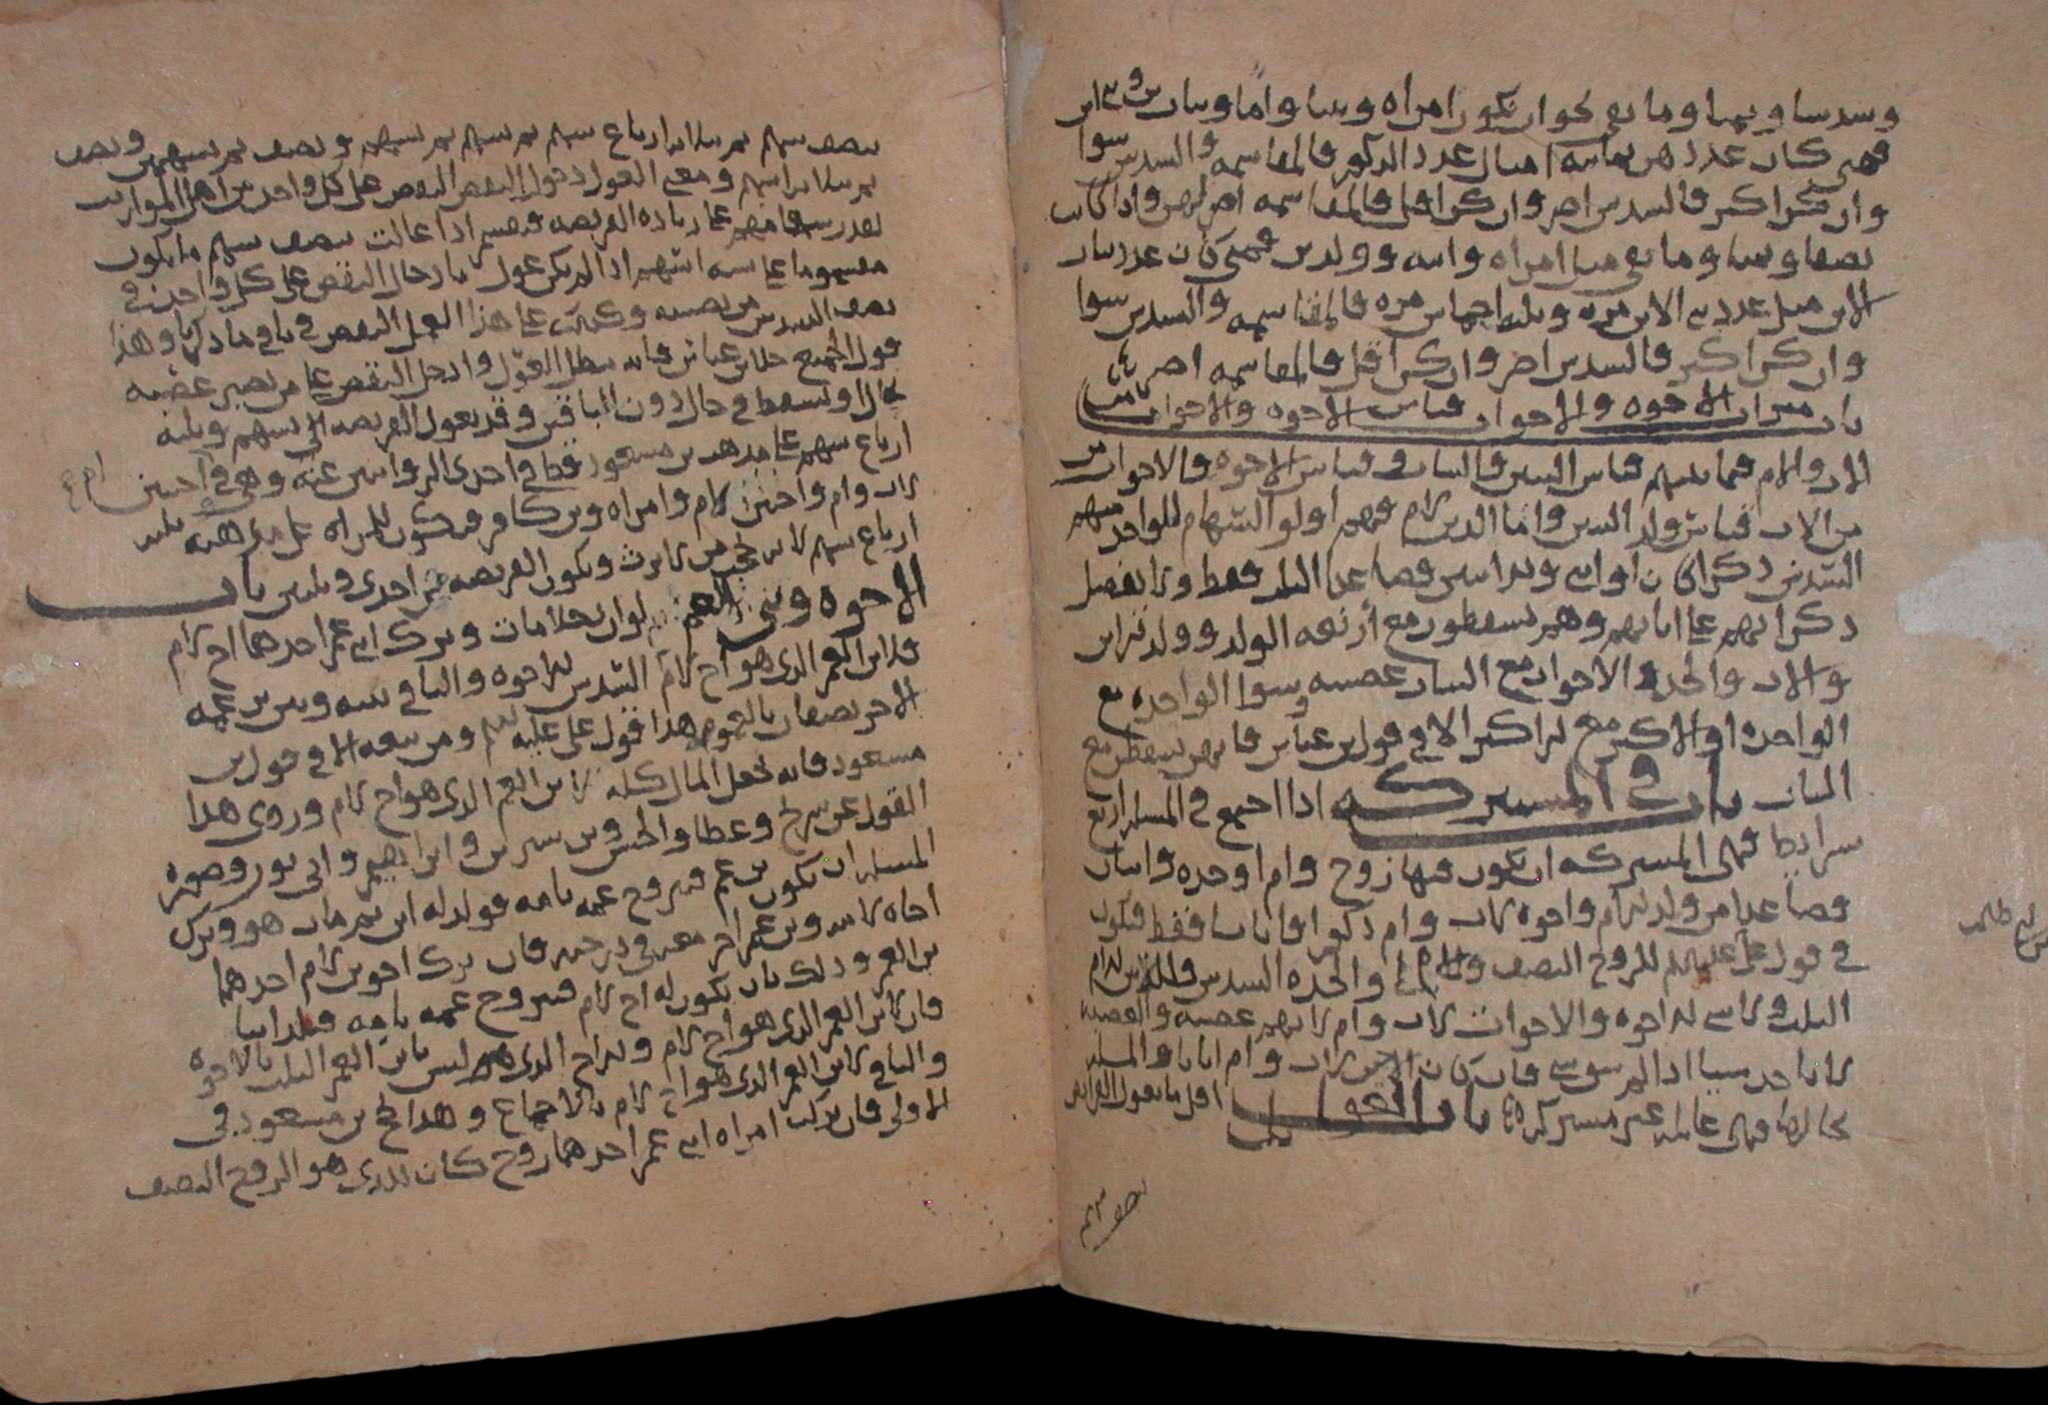 وسدسا وثمنا وما بقي نحو ان تكون امراه وبنتا واما وبنات بن
فمتى كان عددهن ثمانيه امثال عدد الذكور فالمقاسمه والسدس سوا
وان كن اكثر فالسدس اضر وان كن اقل فالمقاسمه اضر بهن واذا كانت
نصفا وثمنا وما بقي مثل امراه وابنه وولد بن فمتى كان عدد بنات
الابن مثل عدد بني الابن مره وثلثا اخماس مره فالمقاسمه والسدس سوا
وان كن اكثر فالسدس اضر وان كن اقل فالمقاسمه اضر بهن
باب ميراث الاخوه والاخوات قياس الاخوه والاخوات من
الاب والام فيما بينهم قياس البنين والبنات وقياس الاخوه والاخوات
من الاب قياس ولد البنين واما الذين لام فهم اولو السهام للواحد منهم
السدس ذكرا كان او انثى ولاثنين فصاعدا الثلث فقط ولا يفضل
ذكرانهم على اناثهم وهم يسقطون مع اربعه الولد وولد الابن
والاب والجد والاخوات مع البنات عصبه وسوا الواحده مع
الواحده او الاكثر مع الاكثر الا في قول بن عباس فانهن يسقطن مع
البنات باب في المشتركه اذا اجتمع في المسله اربع
شرايط فهي المشتركه ان يكون فيها زوج وام او جده واثنان
فصاعدا من ولد الام واخوه لاب وام ذكورا او اناثا فقط فيكون
في قول علي عليه السلم للزوج النصف وللام او الجده السدس وللاخوين لام
الثلث ولا شي للاخوه والاخوات لاب وام لانهم عصبه والعصبه
لا ياخذ شيا اذا لم يبق شي فان كان الاخوه لاب وام اناثا والمسله
بحالها فهي عايله غير مشتركه باب العول اقل ما تعول الفرايض
نصف سهم ثم ثلاثه ارباع سهم ثم سهم ثم سهم ونصف ثم سهمين ونصف
ثم ثلاثه اسهم ومعنى العول دخول النقص على كل واحد من اهل المواريث
بقدر سهامهم على زياده الفريضه فيصير اذا عالت نصف سهم ما يكون
مقسوما على سته اسهم اذا لم يكن عول بادخال النقص على كل واحد في
نصف السدس من نصيبه وكذلك على هذا العمل النقص في باقي ما ذكرنا وهذا
قول الجميع خلا بن عباس فانه يبطل العول وادخل النقص على من يصير عصبه
بحال او يسقط في حال دون الباقين وقد تعول الفريضه الى سهم وثلثه
ارباع سهم على مذهب بن مسعود فقط في احدى الروايتين عنه وهي في اختين
لاب وام واختين لام وامراه وبن كافر فيكون للمراه على مذهبه ثلثه
ارباع سهم لانه يحجب من لا يرث وتكون الفريضه من احدى وثلثين باب
الاخوه وبني العم لو ان رجلا مات وترك ابني عم احدهما اخ لام
فلابن العم الذي هو اخ لام السدس بالاخوه والباقي بينه وبين بن عمه
الاخر نصفان بالعمومه هذا قول علي عليه السلم ومن تبعه الا في قول بن
مسعود فانه يجعل المال كله لابن العم الذي هو اخ لام وروي هذا
القول عن شريح وعطا والحسن وبن سيرين وابراهيم وابي ثور وصوره
المسله ان يكون بن عم فتزوج عمه بامه فولد له ابن ثم مات هو وترك
اخاه لامه وبن عم اخر معه في درجته فان ترك اخوين لام احدهما
بن العم وذلك بان يكون له اخ لام فتزوج عمه بامه فولد ابنا
فان لابن العم الذي هو اخ لام وللاخ الذي هو ليس بابن العم الثلث بالاخوه
والباقي لابن العم الذي هو اخ لام بالاجماع وهذا يحج بن مسعود في
الاولى فان تركت امراه ابني عم احدهما زوج كان للذي هو الزوج النصف